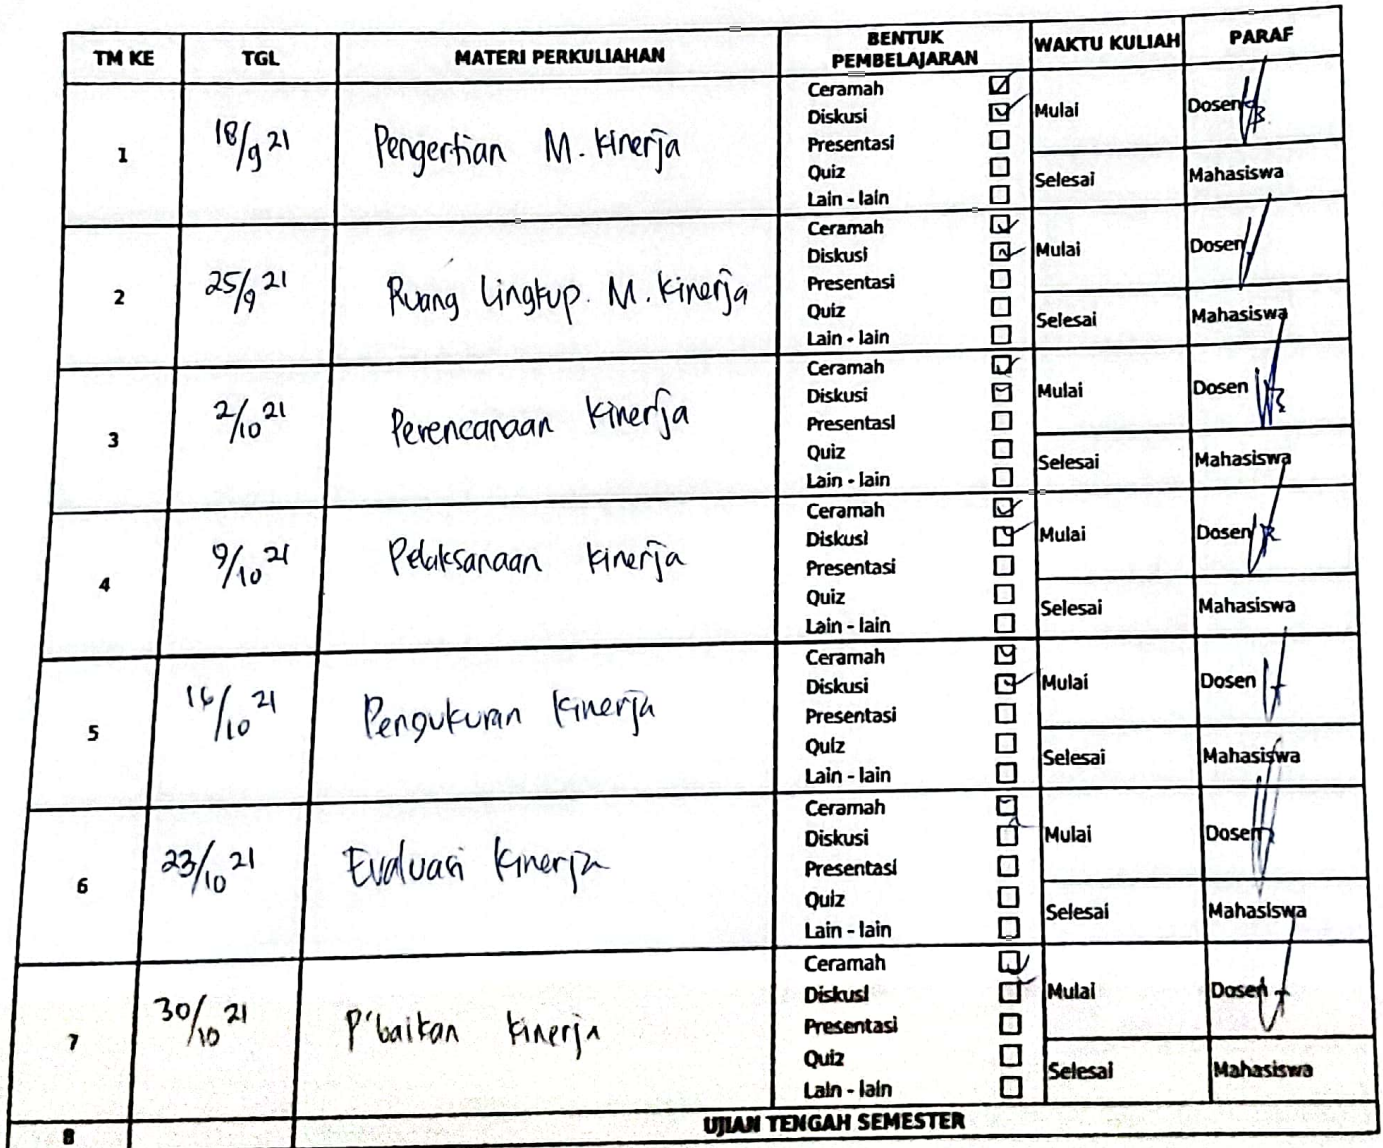 TM KE TGL MATERI PERKULIAHAN BENTUK PEMBELAJARAN WAKTU KULIAH PARAF
1 18/9 21 Pengertian M. Kinerja
Ceramah
Diskusi
Presentasi
Quiz
Lain - lain
Mulai
Selesai
Dosen
Mahasiswa
2 25/9 21 Ruang Lingkup. M. Kinerja
Ceramah
Diskusi
Presentasi
Quiz
Lain - lain
Mulai
Selesai
Dosen
Mahasiswa
3 2/10 21 Perencanaan Kinerja
Ceramah
Diskusi
Presentasi
Quiz
Lain - lain
Mulai
Selesai
Dosen
Mahasiswa
4 9/10 21 Pelaksanaan Kinerja
Ceramah
Diskusi
Presentasi
Quiz
Lain - lain
Mulai
Selesai
Dosen
Mahasiswa
5 16/10 21 Pengukuran Kinerja
Ceramah
Diskusi
Presentasi
Quiz
Lain - lain
Mulai
Selesai
Dosen
Mahasiswa
6 23/10 21 Evaluasi Kinerja
Ceramah
Diskusi
Presentasi
Quiz
Lain - lain
Mulai
Selesai
Dosen
Mahasiswa
7 30/10 21 P'baikan Kinerja
Ceramah
Diskusi
Presentasi
Quiz
Lain - lain
Mulai
Selesai
Dosen
Mahasiswa
8 UJIAN TENGAH SEMESTER